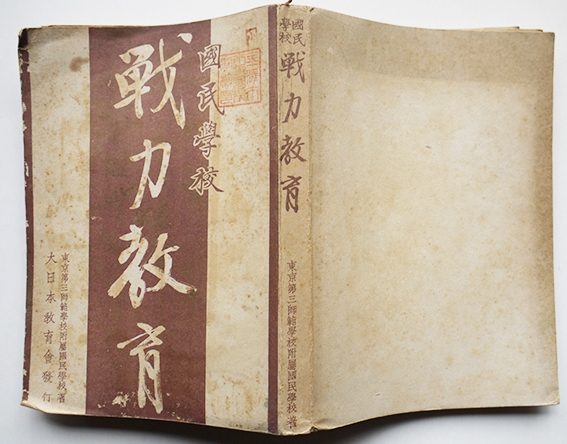 國民學校
戦力教育
東京第三師範學校附屬國民學校著
大日本教育會發行
國民學校
戦力教育
東京第三師範學校附屬國民學校著